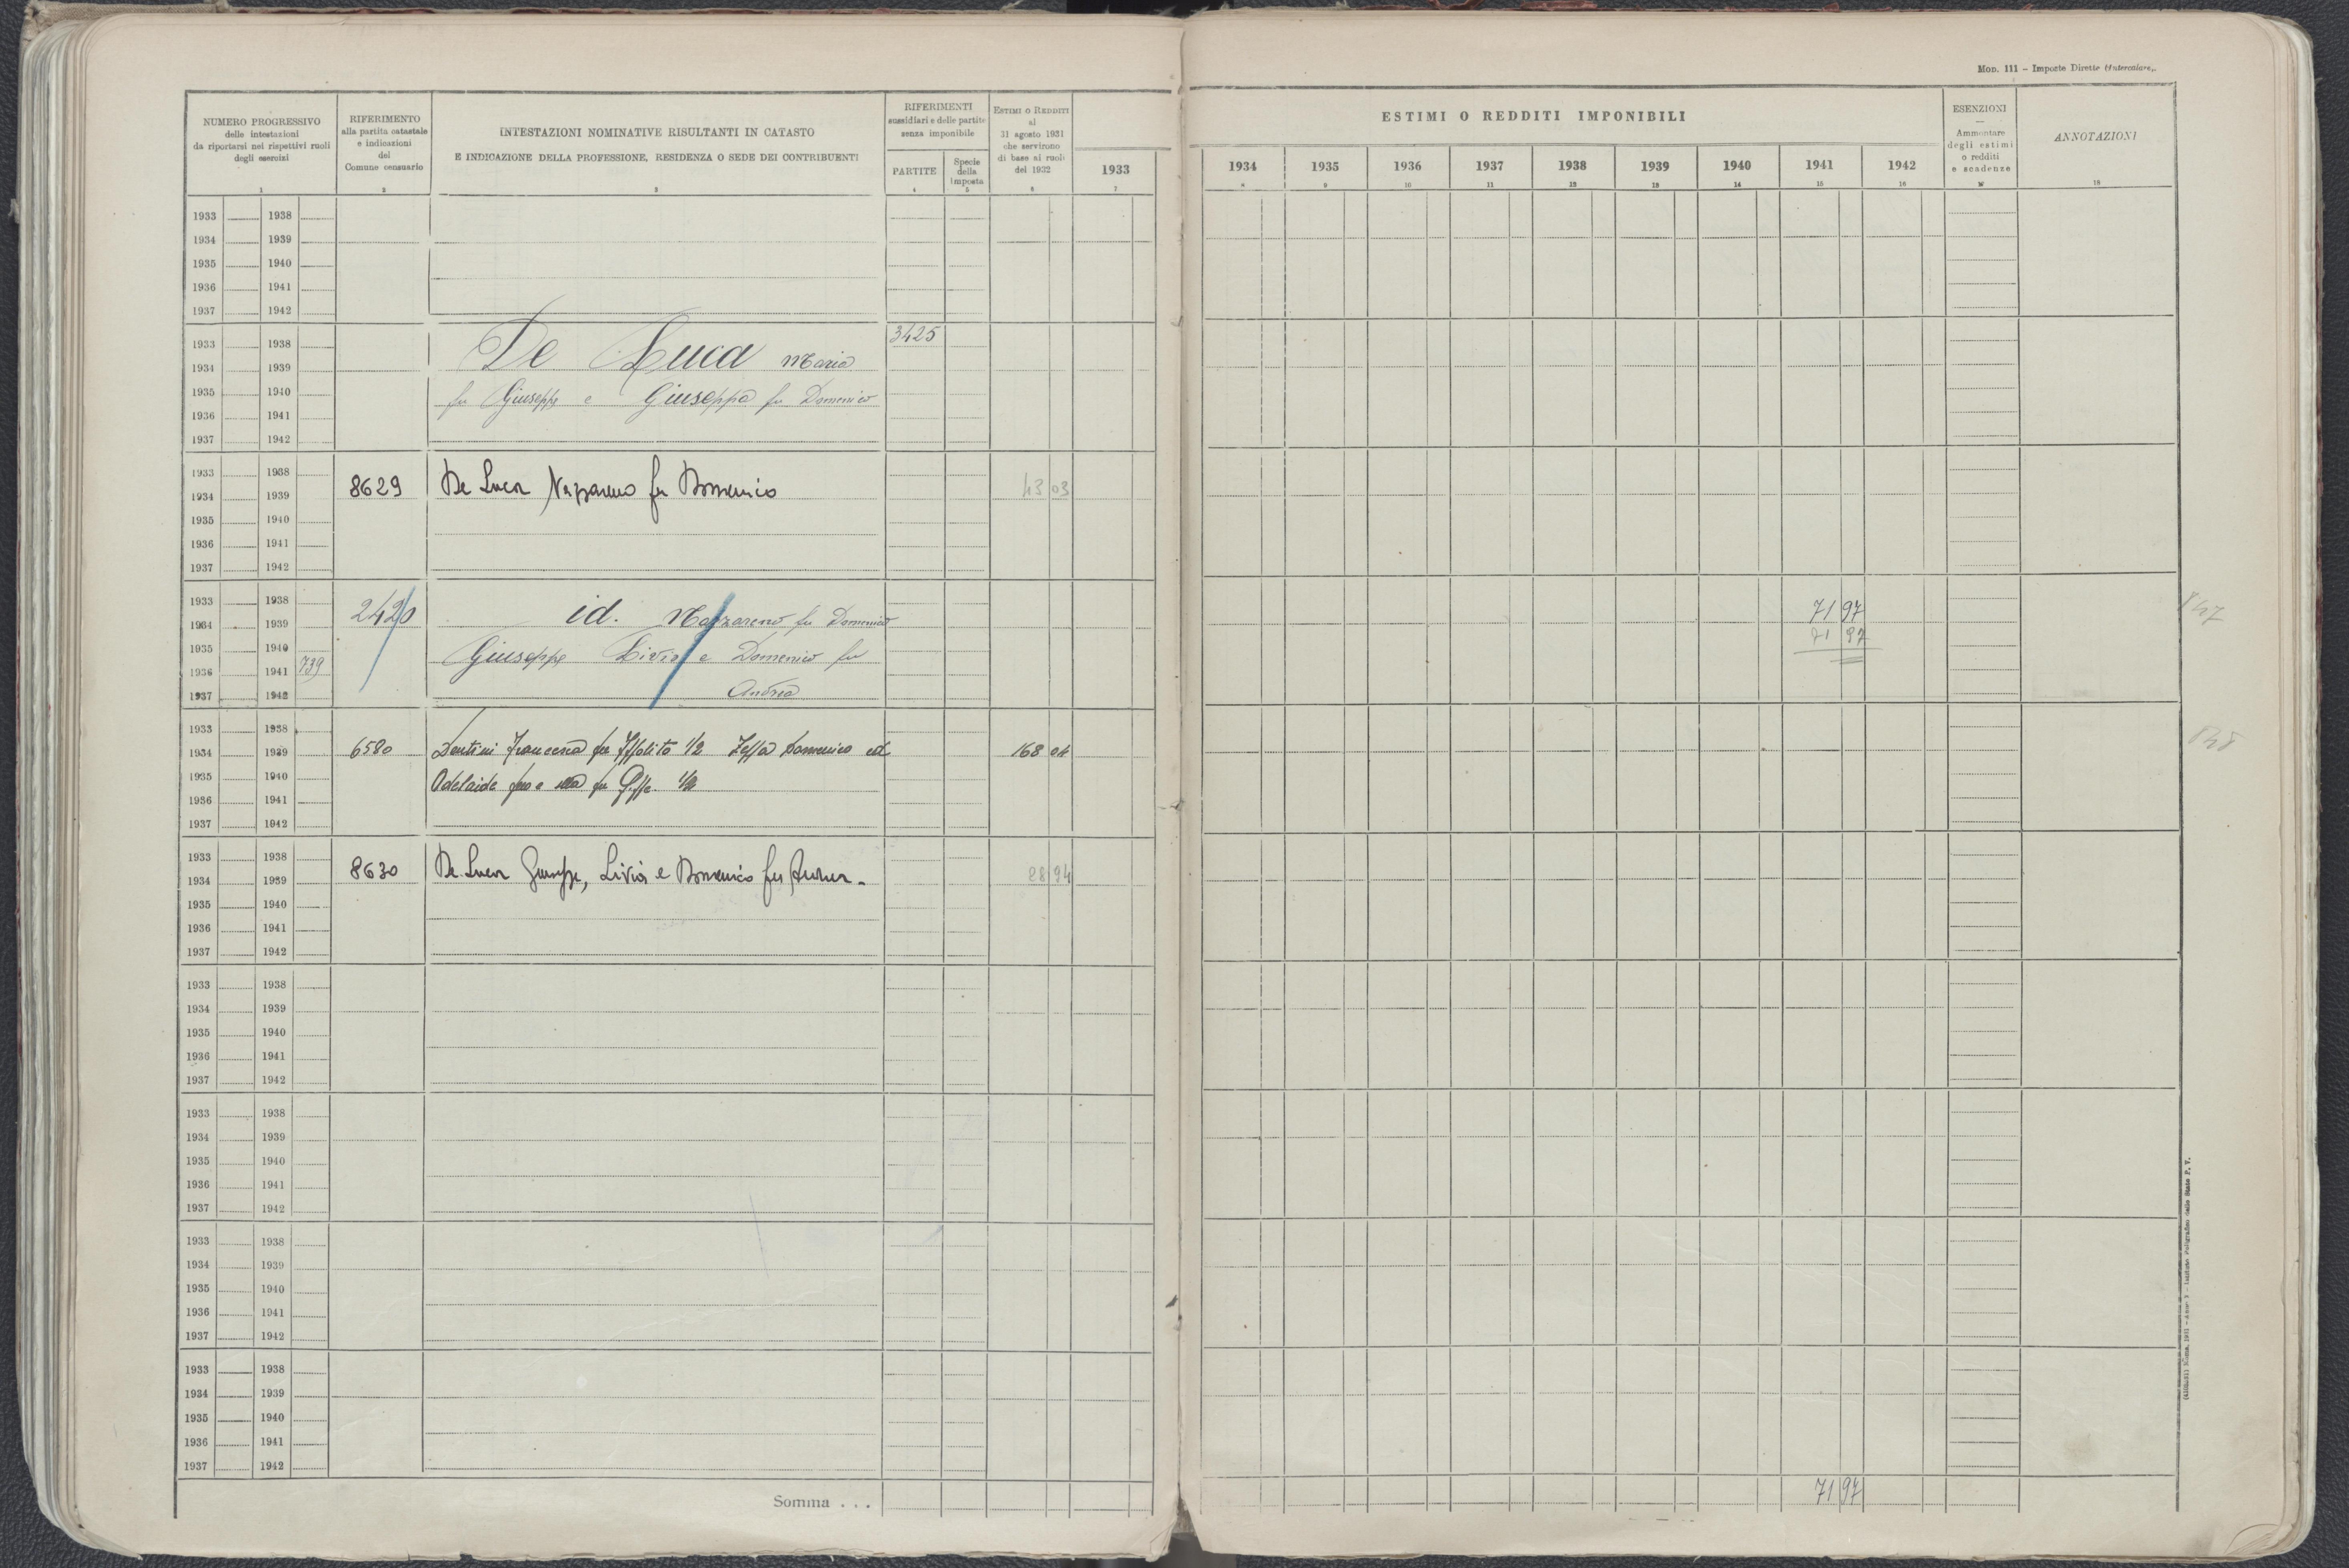 Mod. 111 – Imposte Dirette (Intercalare).
NUMERO PROGRESSIVO
delle intestazioni
da riportarsi nei rispettivi ruoli
degli esercizi
1
RIFERIMENTO
alla partita catastale
e indicazioni
del
Comune censuario
2
INTESTAZIONI NOMINATIVE RISULTANTI IN CATASTO
E INDICAZIONE DELLA PROFESSIONE, RESIDENZA O SEDE DEI CONTRIBUENTI
3
RIFERIMENTI
sussidiari e delle partite
senza imponibile
PARTITE
4
Specie
della
imposta
5
ESTIMI O REDDITI
al
31 agosto 1931
che servirono
di base ai ruoli
del 1932
6
1933
7
ESTIMI O REDDITI IMPONIBILI
1934 1935 1936 1937 1938 1939 1940 1941 1942
8 9 10 11 12 13 14 15 16
ESENZIONI
—
Ammontare
degli estimi
o redditi
e scadenze
ANNOTAZIONI
18
1933 1938
1934 1939
1935 1940
1936 1941
1937 1942
1933 1938 3425
1934 1939 De Luca Maria
1935 1940 fu Giuseppe e Giuseppa fu Domenico
1936 1941
1937 1942
1933 1938
1934 1939 8629 De Luca Nazzareno fu Domenico 43 03
1935 1940
1936 1941
1937 1942
1933 1938 2420 id. Nazzareno fu Domenico 71 97
1934 1939 71 97
1935 1940 Giuseppe Livia e Domenico fu
1936 1941 739
1937 1942 Andrea
1933 1938
1934 1939 6580 Dentini Francesca fu Ippolito 1/2 Zeppa Domenico ed 168 04
1935 1940 Adelaide fu Giuseppe 1/2
1936 1941
1937 1942
1933 1938
1934 1939 8630 De Luca Giuseppe, Livia e Domenico fu Andrea. 28 94
1935 1940
1936 1941
1937 1942
1933 1938
1934 1939
1935 1940
1936 1941
1937 1942
1933 1938
1934 1939
1935 1940
1936 1941
1937 1942
1933 1938
1934 1939
1935 1940
1936 1941
1937 1942
1933 1938
1934 1939
1935 1940
1936 1941
1937 1942
Somma . . . 71 97